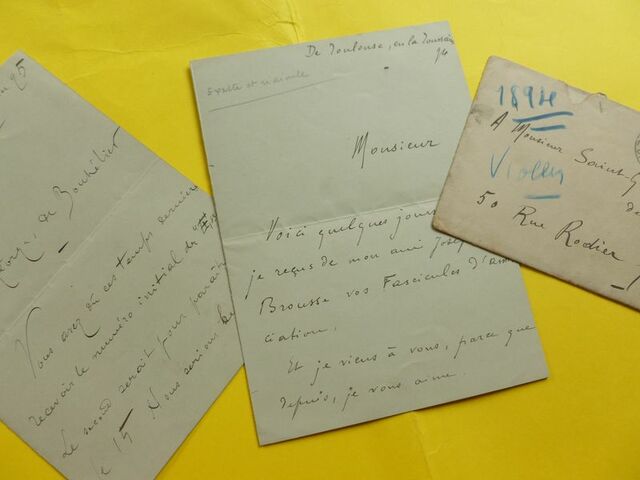 95
de Bouhélier
Vous avez dû ces temps derniers
recevoir le numéro initial de
Le second serait pour paraître
le 15. Nous serions
De Toulouse, en la Toussaint
94
Monsieur
Voici quelques jours
je reçus de mon ami Joseph
Brousse vos Fascicules d'
ciation.
Et je viens à vous, parce que
depuis, je vous aime.
1894
A Monsieur Saint-G
Violley
50 Rue Rodier